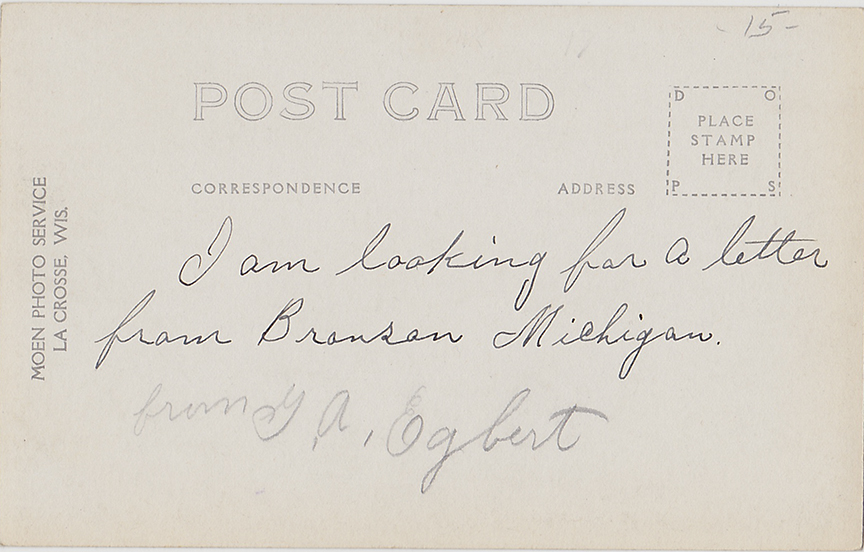 15-
POST CARD
D O
PLACE
STAMP
HERE
P S
CORRESPONDENCE
ADDRESS
MOEN PHOTO SERVICE
LA CROSSE, WIS.
I am looking for a letter
from Bronson Michigan.
from G, A, Egbert